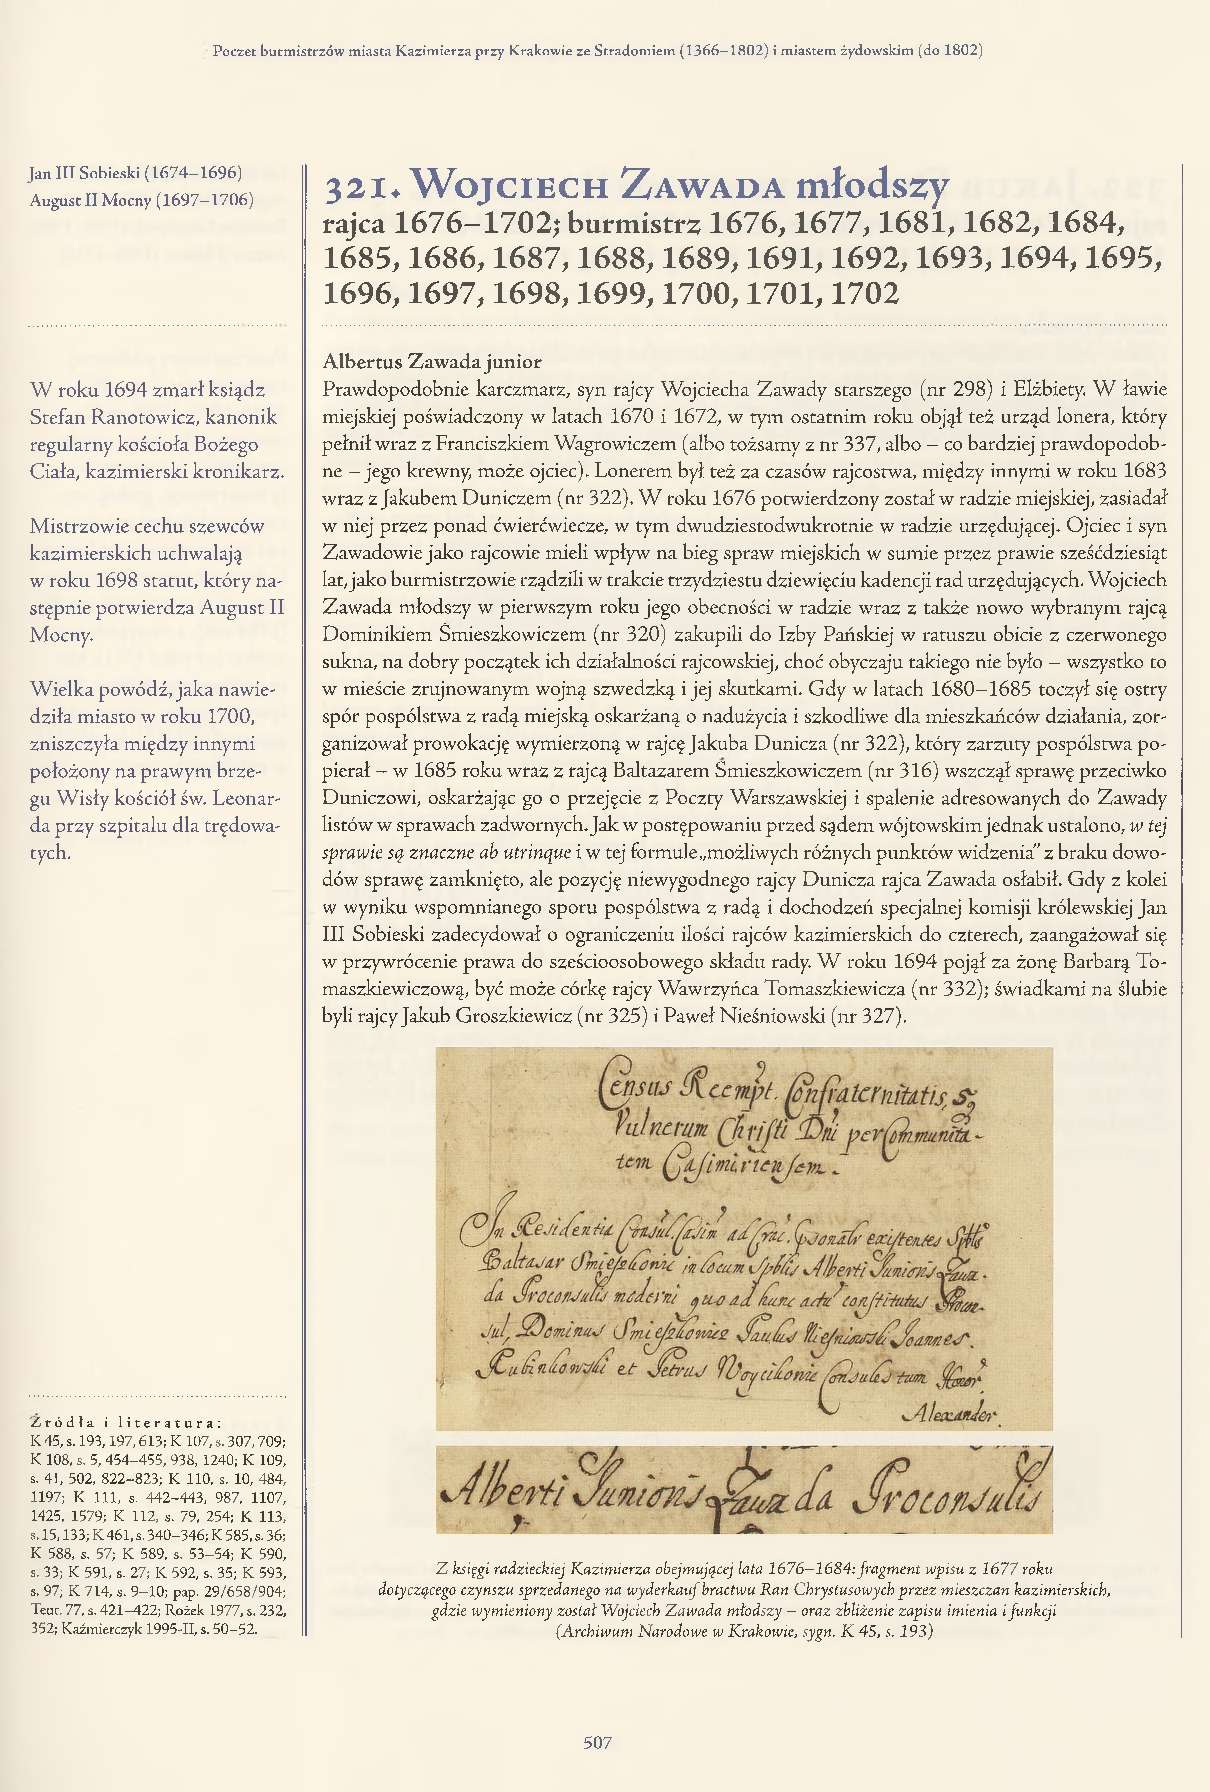 Poczet burmistrzów miasta Kazimierza przy Krakowie ze Stradomiem (1366–1802) i miastem żydowskim (do 1802)
Jan III Sobieski (1674–1696)
August II Mocny (1697–1706)
W roku 1694 zmarł ksiądz
Stefan Ranotowicz, kanonik
regularny kościoła Bożego
Ciała, kazimierski kronikarz.
Mistrzowie cechu szewców
kazimierskich uchwalają
w roku 1698 statut, który na-
stępnie potwierdza August II
Mocny.
Wielka powódź, jaka nawie-
dziła miasto w roku 1700,
zniszczyła między innymi
położony na prawym brze-
gu Wisły kościół św. Leonar-
da przy szpitalu dla trędowa-
tych.
Źródła i literatura:
K 45, s. 193, 197, 613; K 107, s. 307, 709;
K 108, s. 5, 454–455, 938, 1240; K 109,
s. 41, 502, 822–823; K 110, s. 10, 484,
1197; K 111, s. 442–443, 987, 1107,
1425, 1579; K 112, s. 79, 254; K 113,
s. 15, 133; K 461, s. 340–346; K 585, s. 36;
K 588, s. 57; K 589, s. 53–54; K 590,
s. 33; K 591, s. 27; K 592, s. 35; K 593,
s. 97; K 714, s. 9–10; pap. 29/658/904;
Teut. 77, s. 421–422; Rożek 1977, s. 232,
352; Kaźmierczyk 1995-II, s. 50–52.
321. Wojciech Zawada młodszy
rajca 1676–1702; burmistrz 1676, 1677, 1681, 1682, 1684,
1685, 1686, 1687, 1688, 1689, 1691, 1692, 1693, 1694, 1695,
1696, 1697, 1698, 1699, 1700, 1701, 1702
Albertus Zawada junior
Prawdopodobnie karczmarz, syn rajcy Wojciecha Zawady starszego (nr 298) i Elżbiety. W ławie
miejskiej poświadczony w latach 1670 i 1672, w tym ostatnim roku objął też urząd lonera, który
pełnił wraz z Franciszkiem Wagrowiczem (albo tożsamy z nr 337, albo – co bardziej prawdopodob-
ne – jego krewny, może ojciec). Lonerem był też za czasów rajcostwa, między innymi w roku 1683
wraz z Jakubem Duniczem (nr 322). W roku 1676 potwierdzony został w radzie miejskiej, zasiadał
w niej przez ponad ćwierćwiecze, w tym dwudziestodwukrotnie w radzie urzędującej. Ojciec i syn
Zawadowie jako rajcowie mieli wpływ na bieg spraw miejskich w sumie przez prawie sześćdziesiąt
lat, jako burmistrzowie rządzili w trakcie trzydziestu dziewięciu kadencji rad urzędujących. Wojciech
Zawada młodszy w pierwszym roku jego obecności w radzie wraz z także nowo wybranym rajcą
Dominikiem Śmieszkowiczem (nr 320) zakupili do Izby Pańskiej w ratuszu obicie z czerwonego
sukna, na dobry początek ich działalności rajcowskiej, choć obyczaju takiego nie było – wszystko to
w mieście zrujnowanym wojną szwedzką i jej skutkami. Gdy w latach 1680–1685 toczył się ostry
spór pospólstwa z radą miejską oskarżaną o nadużycia i szkodliwe dla mieszkańców działania, zor-
ganizował prowokację wymierzoną w rajcę Jakuba Dunicza (nr 322), który zarzuty pospólstwa po-
pierał – w 1685 roku wraz z rajcą Baltazarem Śmieszkowiczem (nr 316) wszczął sprawę przeciwko
Duniczowi, oskarżając go o przejęcie z Poczty Warszawskiej i spalenie adresowanych do Zawady
listów w sprawach zadwornych. Jak w postępowaniu przed sądem wójtowskim jednak ustalono, w tej
sprawie są znaczne ab utrinque i w tej formule „możliwych różnych punktów widzenia" z braku dowo-
dów sprawę zamknięto, ale pozycję niewygodnego rajcy Dunicza rajca Zawada osłabił. Gdy z kolei
w wyniku wspomnianego sporu pospólstwa z radą i dochodzeń specjalnej komisji królewskiej Jan
III Sobieski zadecydował o ograniczeniu ilości rajców kazimierskich do czterech, zaangażował się
w przywrócenie prawa do sześcioosobowego składu rady. W roku 1694 pojął za żonę Barbarą To-
maszkiewiczową, być może córkę rajcy Wawrzyńca Tomaszkiewicza (nr 332); świadkami na ślubie
byli rajcy Jakub Groszkiewicz (nr 325) i Paweł Nieśniowski (nr 327).
Census Reempt. Confraternitatis
Vulnerum Christi Dni per Communita-
tem Casimiriensem.
In Residentia Consul. Casim ad existentes
Baltasar Smieszkowic in locum Spblis Alberti Junioris Zawa-
da Proconsulis moderni quo ad hunc actu constitutus Procon-
sul, Dominus Smieszkowicz Paulus Niesniowski Joannes
Kubinkowski et Petrus Woycikowic Consules tum Honor
Alexander
Alberti Junioris Zawada Proconsulis
Z księgi radzieckiej Kazimierza obejmującej lata 1676–1684: fragment wpisu z 1677 roku
dotyczącego czynszu sprzedanego na wyderkauf bractwu Ran Chrystusowych przez mieszczan kazimierskich,
gdzie wymieniony został Wojciech Zawada młodszy – oraz zbliżenie zapisu imienia i funkcji
(Archiwum Narodowe w Krakowie, sygn. K 45, s. 193)
507